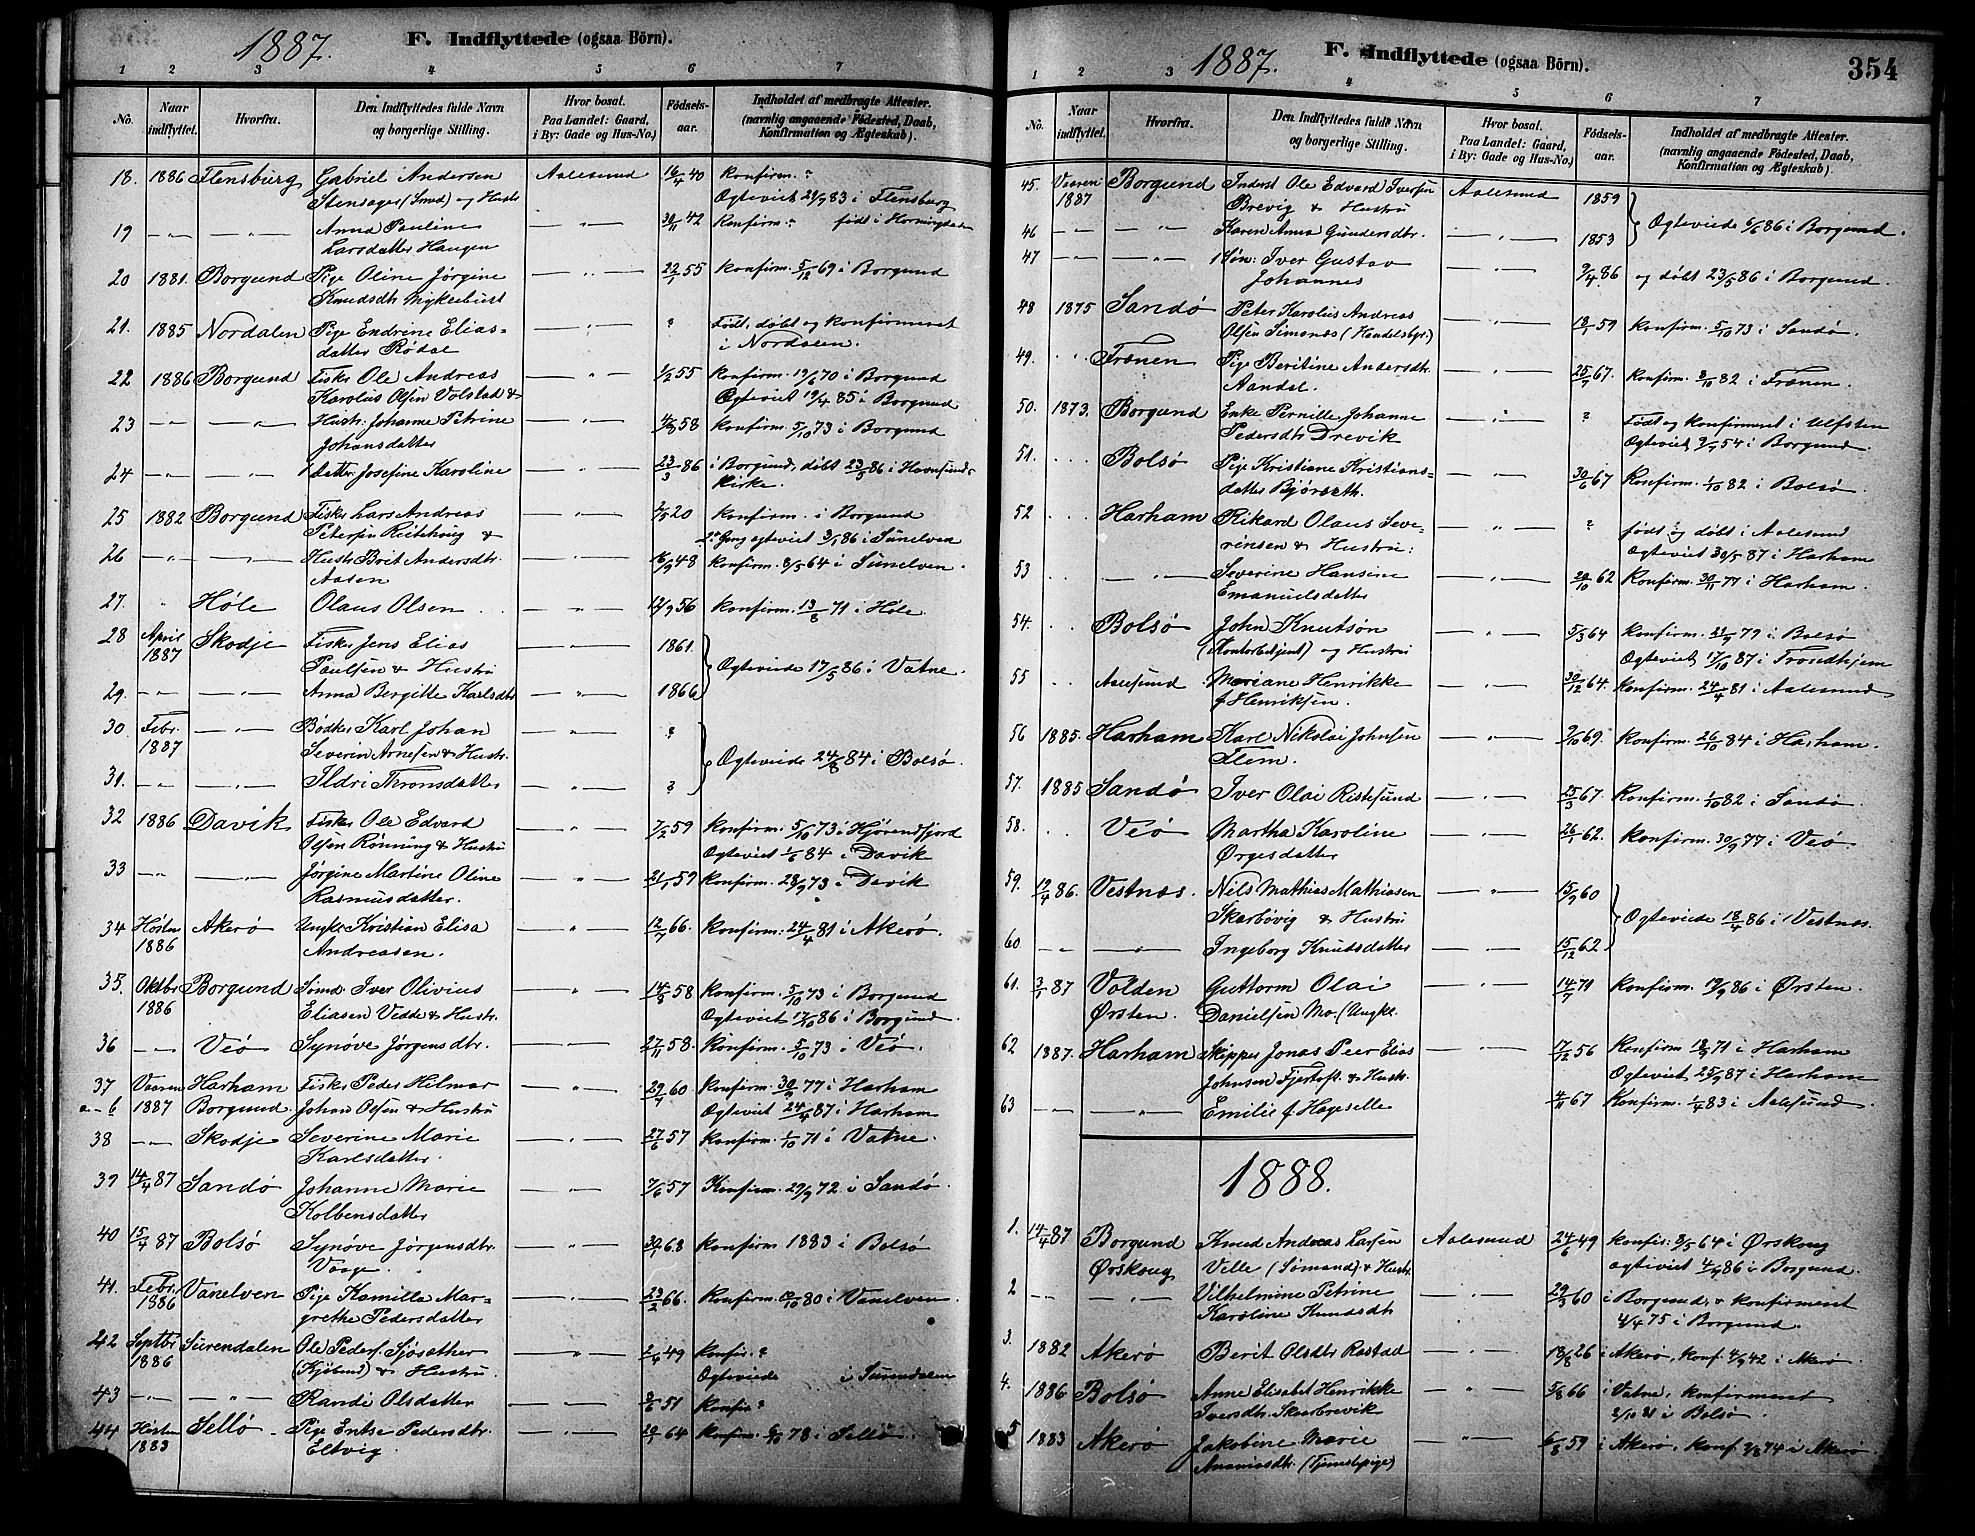 1887.
F. Indflyttede (ogsaa Börn).
1 2 3 4 5 6 7
No.
Naar indflyttet.
Hvorfra.
Den Indflyttedes fulde Navn og borgerlige Stilling.
Hvor bosat. Paa Landet: Gaard, i By: Gade og Hus-No.)
Födsels-aar.
Indholdet af medbragte Attester. (navnlig angaaende Födested, Daab, Konfirmation og Ægteskab).
18. 1886 Flensburg Gabriel Andersen Aalesund 16/4 40 Konfirm. ?
Stensager (Smed) og Hustr Ogteviet 29/9 83 i Flensburg
19 — " — — " — Anna Pauline — " — 30/11 42 Konfirm. " født i Horningdalen
Larsdatter Haugen
20 1881. Borgund Pige Oline Jørgine — " — 22/1 55 Konfirm. 5/12 69 i Borgund
Knudsdtr Myklebust
21. 1885 Nordalen Pige Endrine Elias- — " — ? Født, døbt og konfirmeret
datter Rødal i Nordalen.
22 1886 Borgund Fisker Ole Andreas — " — 1/2 55 Konfirm. 19/6 70 i Borgund
Karolius Olsen Volstad & Ogteviet 19/4 85 i Borgund
23 — " — — " — Hustr: Johanne Petrine — " — 58 Konfirm. 5/10 73 i Borgund
Johansdatter
24 — " — — " — datter: Josefine Karoline — " — 23/3 86 i Borgund, døbt 23/5 86 i Havnsunds
Kirke.
25 1882 Borgund Fisker Lars Andreas — " — 20 Konfirm. i Borgund
Petersen Ritehaug & Gang ogteviet 86 i Sunelven
26 — " — — " — Hustr: Brit Andersdtr. — " — 16/9 48 Konfirm. 8/5 64 i Sunelven.
Aasen
27. " Høle Olaus Olsen — " — 12/9 56 Konfirm. 13/8 71 i Høle.
28 April Skodje Fisker Jens Elias 1861
1887 Paulsen & Hustru Ogteviede 17/5 86 i Vatne.
29. — " — — " — Anna Bergitte Karlsdtr — " — 1866
30 Febr. — " — Bødker Karl Johan — " — ?
1887 Severin Arnesen & Hustr. Ogteviede 24/8 84 i Bolsø.
31. — " — — " — Ildri Thronsdatter — " — ?
32 1886 Davik Fisker Ole Edvard — " — 7/2 59 Konfirm. 5/10 73 i Hjørendfjord
Olsen Rønning & Hustru Ogteviet 1/6 84 i Davik
33 — " — — " — Jørgine Martine Oline — " — 21/1 59 Konfirm. 28/9 73 i Davik
Rasmusdatter.
34 Høsten Akerø Ungk: Kristian Elisa — " — 12/7 66. Konfirm: 24/4 81 i Akerø.
1886 Andreasen.
35. Oktbr Borgund Sømd. Iver Olivius — " — 14/8 58 Konfirm. 5/10 73 i Borgund
1886 Eliasen Vedde & Hustr. Ogteviet 17/10 86 i Borgund.
36 — " — Veö Synøve Jørgensdtr. 27/11 58. Konfirm. 5/10 73 i Veö.
37 Vaaren Harham Fisker Peder Hilmar — " — 29/7 60 Konfirm. 30/9 77 i Harham
a-6 1887 Borgund. Johan Olsen & Hustru Ogteviet 24/4 87 i Harham
38 — " — Skodje Severine Marie — " — 27/6 57 Konfirm. 1/10 71 i Vatne.
Karlsdatter.
39 14/4 87 Sandö Johanne Marie — " — 7/6 57 Konfirm. 29/9 72 i Sandö.
Kolbensdatter
40 15/4 87 Bolsö Synøve Jørgensdtr. — " — 30/1 68 Konfirm 1883 i Bolsö
Vaage.
41. Febr. Vanelven Pige Kamilla Mar- — " — 23/2 66. Konfirm. 80 i Vanelven.
1886 grethe Pedersdatter
42 Septbr Surendalen Ole Peders. Sjøsather — " — 49 Konfir. ?
1886 (Kjøbmd) & Hustru Ogteviede i Surendalen
43 — " — — " — Randi Olsdatter — " — 51 Konfir ?
44 Høsten Sellö Pige Pedersdtr. — " — 20/1 64 Konfirm. 78 i Sellö.
1883 Eltvig.
1887.
F. Indflyttede (ogsaa Börn).
354
1 2 3 4 5 6 7
No.
Naar indflyttet.
Hvorfra.
Den Indflyttedes fulde Navn og borgerlige Stilling.
Hvor bosat. Paa Landet: Gaard, i By: Gade og Hus-No.)
Födsels-aar.
Indholdet af medbragte Attester. (navnlig angaaende Födested, Daab, Konfirmation og Ægteskab).
45. Vaaren Borgund Inderst Ole Edvard Iversen Aalesund 1859
1887 Brevig & Hustru Ogteviede 6/6 86 i Borgund.
46 — " — — " — Karen Anna Gundersdtr. — " — 1853
47 — " — — " — Søn: Iver Gustav — " — 9/4 86 og døbt 23/5 86 i Borgund.
Johannes
48 1875 Sandö Peter Karolius Andreas — " — 18/1 59 Konfirm. 5/10 73 i Sandö.
Olsen Simonæs (Handelsbyr.)
49. Frænen Pige Beritine Andersdtr. — " — 25/7 67. Konfirm. 8/10 82 i Frænen.
Aandal.
50. 1873. Borgund Enke Pernille Johanne — " — ? Født og konfirmeret i Ulfsten
Pedersdtr Drevik Ogteviet 54 i Borgund.
51. Bolsö Pige Kristiane Kristians- — " — 30/6 67 Konfirm. 1/10 82 i Bolsö.
datter Bjørseth.
52 Harham Rikard Olaus Seve- — " — ? født og døbt i Aalesund
rinsen & Hustru: Ogteviet 30/5 87 i Harham
53 — " — Severine Hansine — " — 20/10 62 Konfirm. 30/11 77 i Harham.
Emanuelsdatter
54. Bolsö John Knutsøn — " — 5/3 64 Konfirm. 79 i Bolsö
(Kontorbetjent) og Hustru Ogteviet 17/10 87 i Trondhjem
55 Aalesund Mariane Henrikke — " — 30/12 64. Konfirm. 24/4 81 i Aalesund
f Henriksen.
56 1885. Harham Karl Nikolai Johnsen — " — 9/10 69. Konfirm. 26/10 84 i Harham.
Flem.
57. 1885 Sandö Iver Olai Ristesund — " — 25/3 67. Konfirm. 1/10 82 i Sandö.
58. Veö Martha Karoline — " — 26/1 62. Konfirm. 30/9 77 i Veö.
Ørgesdatter
59. 19/4 86. Vestnæs. Nils Mathias Mathiasen — " — 15/9 60
Skarbøvig & Hustru Ogteviede 18/4 86 i Vestnæs.
60 — " — — " — Ingeborg Knutsdatter — " — 15/12 62
61. 3/1 87 Volden Guttorm Olai — " — 14/7 71 Konfirm. 19/9 86 i Ørsten.
Ørsten. Danielsen Mo. (Ungk.
62 1887. Harham Skipper Jonas Peer Elias — " — 17/12 56 Konfirm 71 i Harham
Johnsen Fjørtoft. & Hustr. Ogteviet 25/9 87 i Harham
63 — " — — " — Emilie f Hageselle 67 Konfirm. 1/4 83 i Aalesund.
1888.
1. 14/4 87 Borgund Knud Andreas Larsen Aalesund 24/6 49 Konfir: 8/5 64 i Ørskoug
Ørskoug Velle (Sømand) & Hustr. ogteviet 4/9 86 i Borgund.
2 — " — — " — Vilhelmine Petrine — " — 29/3 60 i Borgund, & konfirmeret
Karoline Knudsdtr 4/4 75 i Borgund.
3. 1882 Akerö Berit Olsdtr Rastad — " — 18/8 26 i Akerö, Konf. 4/9 42 i Akerö.
4. 1886 Bolsö Anne Elisabet Henrikke — " — 5/8 66 i Vatne, konfirmeret
Iversdtr. Skaarbrevik 2/10 81 i Bolsö.
5 1883 Akerö Jakobine Marie — " — 6/8 59 i Akerö, konf. 74 i Akerö.
Ananiasdtr. (Tjenestepige)